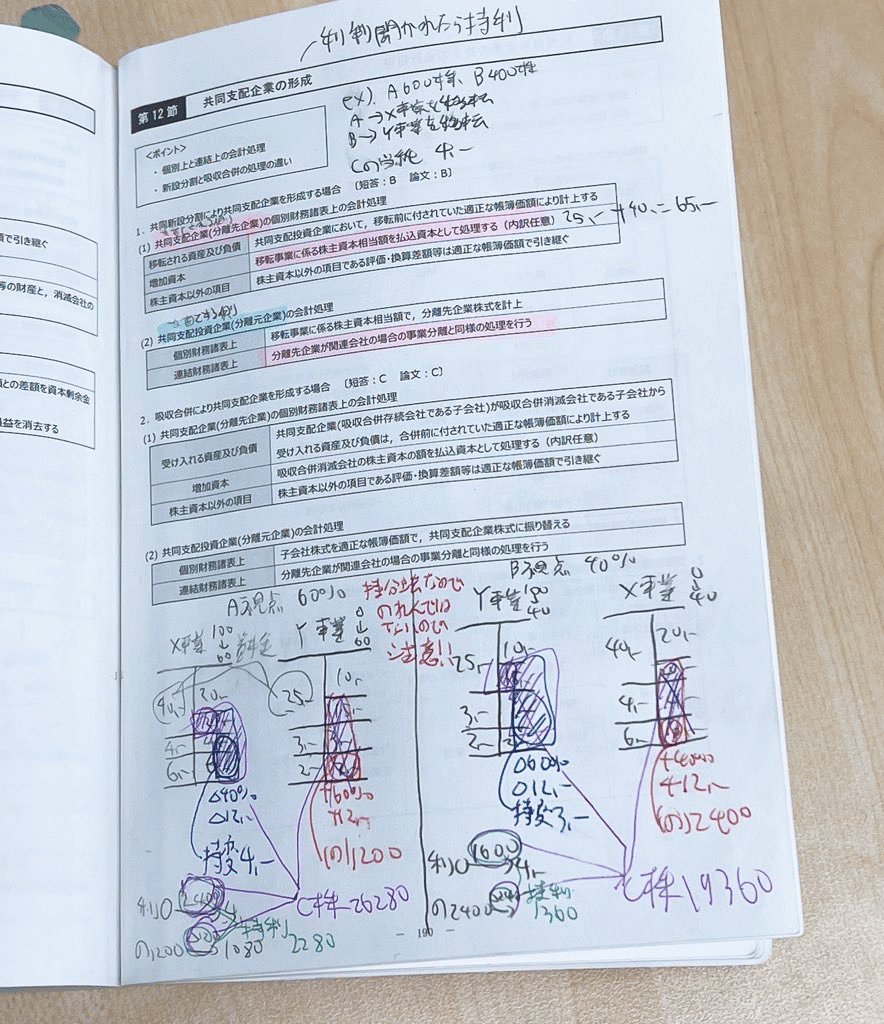 利 聞かれたら持利
第12節 共同支配企業の形成
ex). A 600株、B 400株
A→X事業を移転
B→Y事業を移転
Cの当純 4,-
<ポイント>
・個別上と連結上の会計処理
・新設分割と吸収合併の処理の違い
1. 共同新設分割により共同支配企業を形成する場合 〔短答:B 論文:B〕
(1) 共同支配企業(分離先企業)の個別財務諸表上の会計処理
移転される資産及び負債 共同支配投資企業において、移転前に付されていた適正な帳簿価額により計上する
増加資本 移転事業に係る株主資本相当額を払込資本として処理する(内訳任意) 25,- +40,-=65,-
株主資本以外の項目 株主資本以外の項目である評価・換算差額等は適正な帳簿価額で引き継ぐ
(2) 共同支配投資企業(分離元企業)の会計処理
個別財務諸表上 移転事業に係る株主資本相当額で、分離先企業株式を計上
連結財務諸表上 分離先企業が関連会社の場合の事業分離と同様の処理を行う
2. 吸収合併により共同支配企業を形成する場合 〔短答:C 論文:C〕
(1) 共同支配企業(分離先企業)の個別財務諸表上の会計処理
受け入れる資産及び負債 共同支配企業(吸収合併存続会社である子会社)が吸収合併消滅会社である子会社から
受け入れる資産及び負債は、合併前に付されていた適正な帳簿価額により計上する
増加資本 吸収合併消滅会社の株主資本の額を払込資本として処理する(内訳任意)
株主資本以外の項目 株主資本以外の項目である評価・換算差額等は適正な帳簿価額で引き継ぐ
(2) 共同支配投資企業(分離元企業)の会計処理
個別財務諸表上 子会社株式を適正な帳簿価額で、共同支配企業株式に振り替える
連結財務諸表上 分離先企業が関連会社の場合の事業分離と同様の処理を行う
A視点 60%
持分法なので
のれんでは
ないので
注意!!
B視点 40%
X事業 100↓60
Y事業 0↓60
Y事業 100↓40
X事業 0↓40
40,- 20,-
4,-
6,-
25,- 10,-
3,-
2,-
25,- 10,-
3,-
2,-
40,- 20,-
4,-
6,-
△40%
△12,-
持変4,-
+60%
+12,-
の1200
△60%
△12,-
持変3,-
+40%
+12,-
の2400
利0 2400
の1200 1080
持利
2280
C株 26280
利0 1600
の2400
持利
1360
C株 19360
- 190 -
で引き継ぐ
等の財産と、消滅会社の
額との差額を資本剰余金
益を消去する